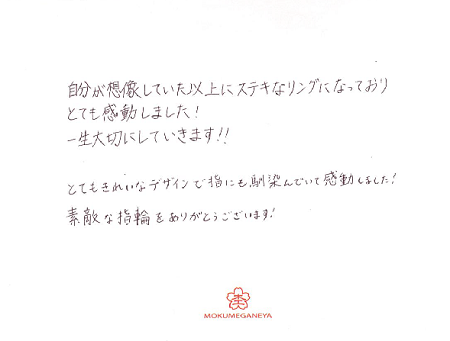 自分が想像していた以上にステキなリングになっており
とても感動しました!
一生大切にしていきます!!
とてもきれいなデザインで指にも馴染んでいて感動しました!
素敵な指輪をありがとうございます!
MOKUMEGANEYA